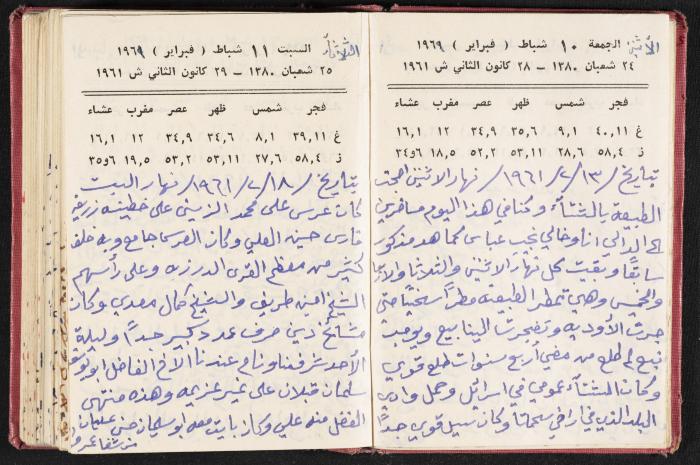 الاثنين
الجمعة ١٠ شباط ( فبراير ) ١٩٦١
٢٤ شعبان ١٣٨٠ – ٢٨ كانون الثاني ش ١٩٦١
فجر شمس ظهر عصر مغرب عشاء
غ ٤٠,١١ ٩,١ ٣٥,٦ ٣٤,٩ ١٢ ١٦,١
ز ٥٨,٤ ٢٨,٦ ٥٣,١١ ٥٢,٢ ١٨,٥ ٣٤و٦
بتاريخ /١٣/ ٢/ ١٩٦١/ نهار الاثنين
الطبيعة بالشتاء وكنا في هذا اليوم مسافرين
الى الدالي انا وخالي نجيب عباس كما هو مذكور
سابقًا وبقيت كل نهار الاثنين والثلاثا والاربعا
والخميس وهي تمطر الطبيعة مطرًا سخيًا حتى
جرت الأوديه وتفجرت الينابيع
نبع لم طلع من مضي أربع سنوات طلع قوي
وكان الشتاء عمومي في اسرائيل وحمل وادي
البلد الذي في سحماتا وكان سيل قوي جدًا
الثلاثاء
السبت ١١ شباط ( فبراير ) ١٩٦١
٢٥ شعبان ١٣٨٠ – ٢٩ كانون الثاني ش ١٩٦١
فجر شمس ظهر عصر مغرب عشاء
غ ٣٩,١١ ٨,١ ٣٤,٦ ٣٤,٩ ١٢ ١٦,١
ز ٥٨,٤ ٢٧,٦ ٥٣,١١ ٥٣,٢ ١٩,٥ ٣٥و٦
بتاريخ /١٨/ ٢/ ١٩٦١/ نهار السبت
كان عرس علي محمد الزيني على خطيبته
فارس حسين العلي وكان العرس جامع وبه خلق
كثير من معظم القرى الدرزيه وعلى رأسهم
الشيخ امين طريف والشيخ كمال معدي وكان
مشايخ دين عدد كبير جدًا وليلة
الأحد شرفنا ونام عندنا الاخ الفاضل ابو يوسف
سلمان قبلان على غير عزيمه وهذه منتهى
الفضل منه علي وكان بايت معه ابو سليمان حسن
من شفاعمرو